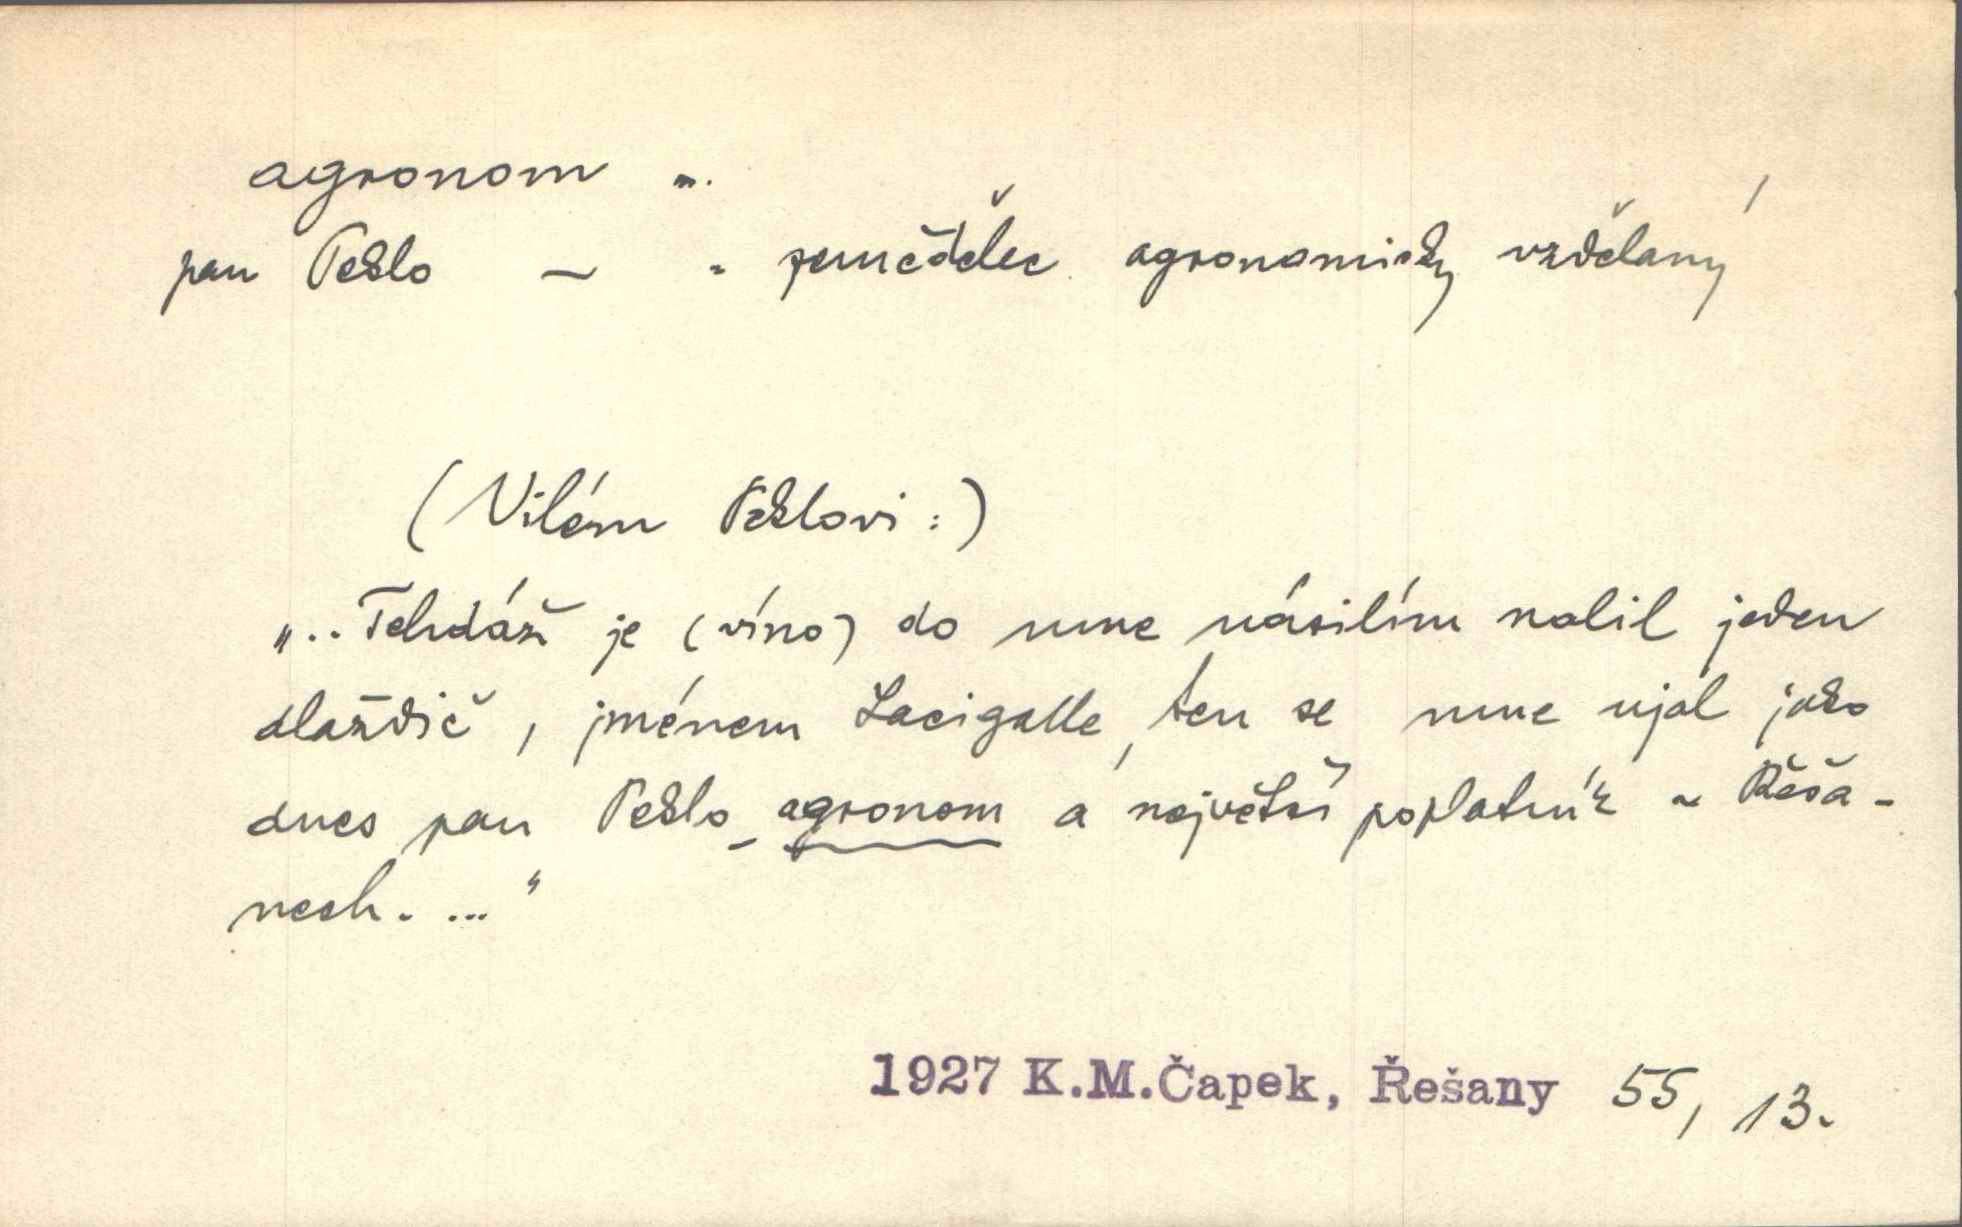 agronom m.
pan Peklo ~ = zemědělec agronomicky vzdělaný
(Vilém Peklovi:)
"..Tehdáž je (víno) do mne násilím nalil jeden
dlaždič, jménem Lacigalle, ten se mne ujal jako
dnes pan Peklo, agronom a největší poplatník v Řeša-
nech. ..."
1927 K.M.Čapek, Řešany 55, 13.